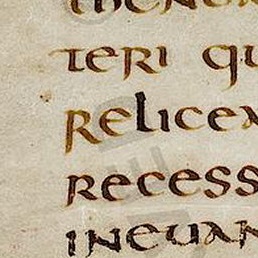 teri qu
relicea
recess
ineuan